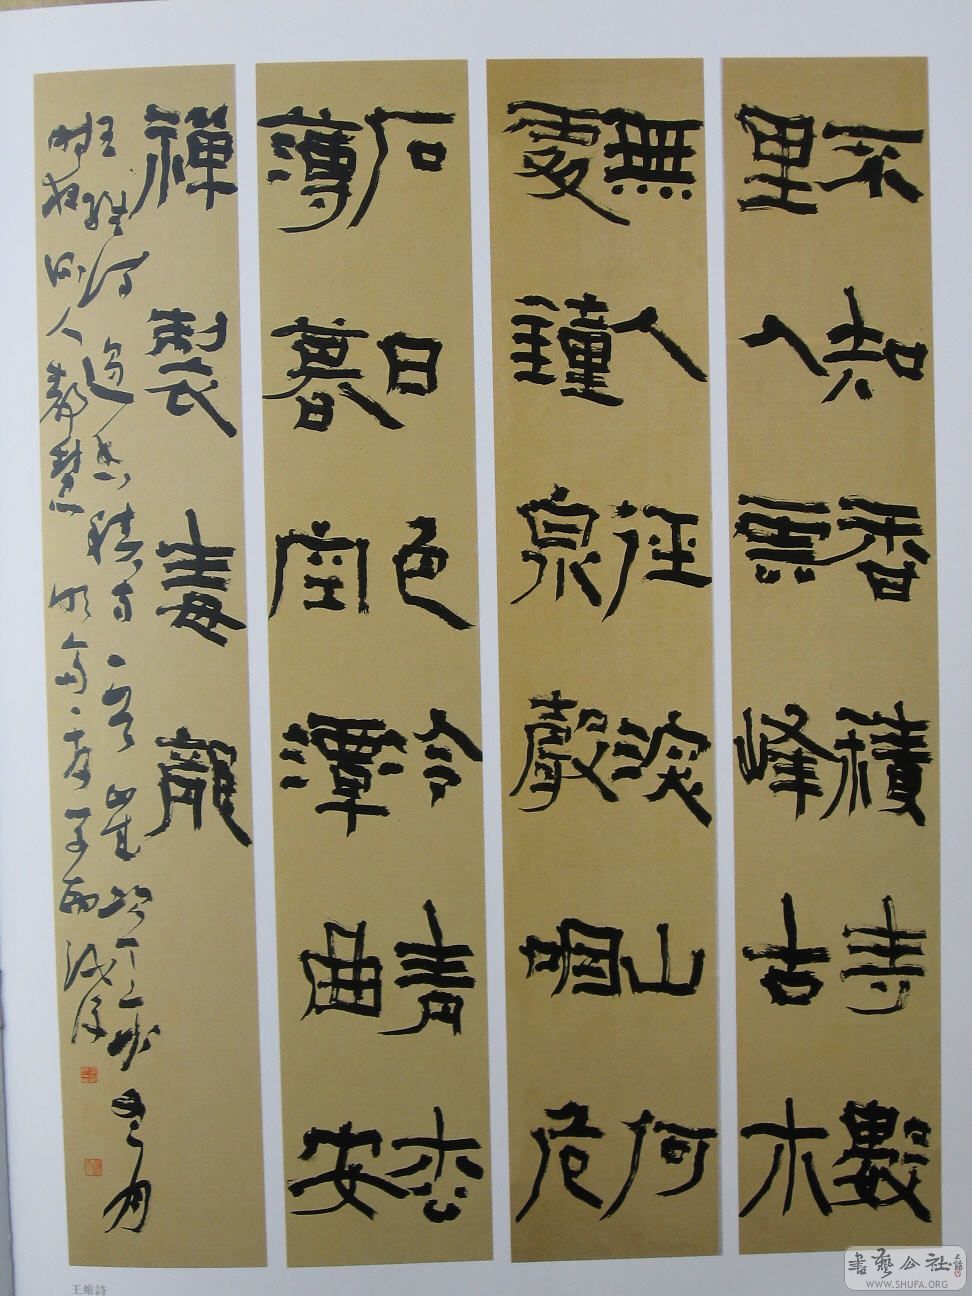 不知香積寺數
里入雲峰古木
無人徑深山何
處鐘泉聲咽危
石日色冷青松
薄暮空潭曲安
禪製毒龍
王維詩過香積寺一首歲次
王維詩
書藝公社
WWW.SHUFA.ORG